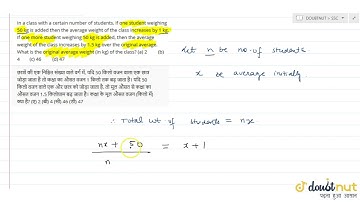 DOUBTNUT + SSC
In a class with a certain number of students, if one student weighing
50 kg is added then the average weight of the class increases by 1 kg.
If one more student weighing 50 kg is added, then the average
weight of the class increases by 1.5 kg over the original average.
What is the original average weight (in kg) of the class? (a) 2 (b)
4 (c) 46 (d) 47
छात्रों की एक निश्चित संख्या वाले वर्ग में, यदि 50 किलो वजन वाला एक छात्र
जोड़ा जाता है तो कक्षा का औसत वजन 1 किलो तक बढ़ जाता है। यदि 50
किलो वजन वाले एक और छात्र को जोड़ा जाता है, तो मूल औसत से कक्षा का
औसत वजन 1.5 किलोग्राम बढ़ जाता है। कक्षा के मूल औसत वजन (किलो में)
क्या है? (ए) 2 (बी) 4 (सी) 46 (डी) 47
Let n be no. of students
x be average initially.
∴ Total wt. of students = nx
nx + 50 = x + 1
n
doubtnut